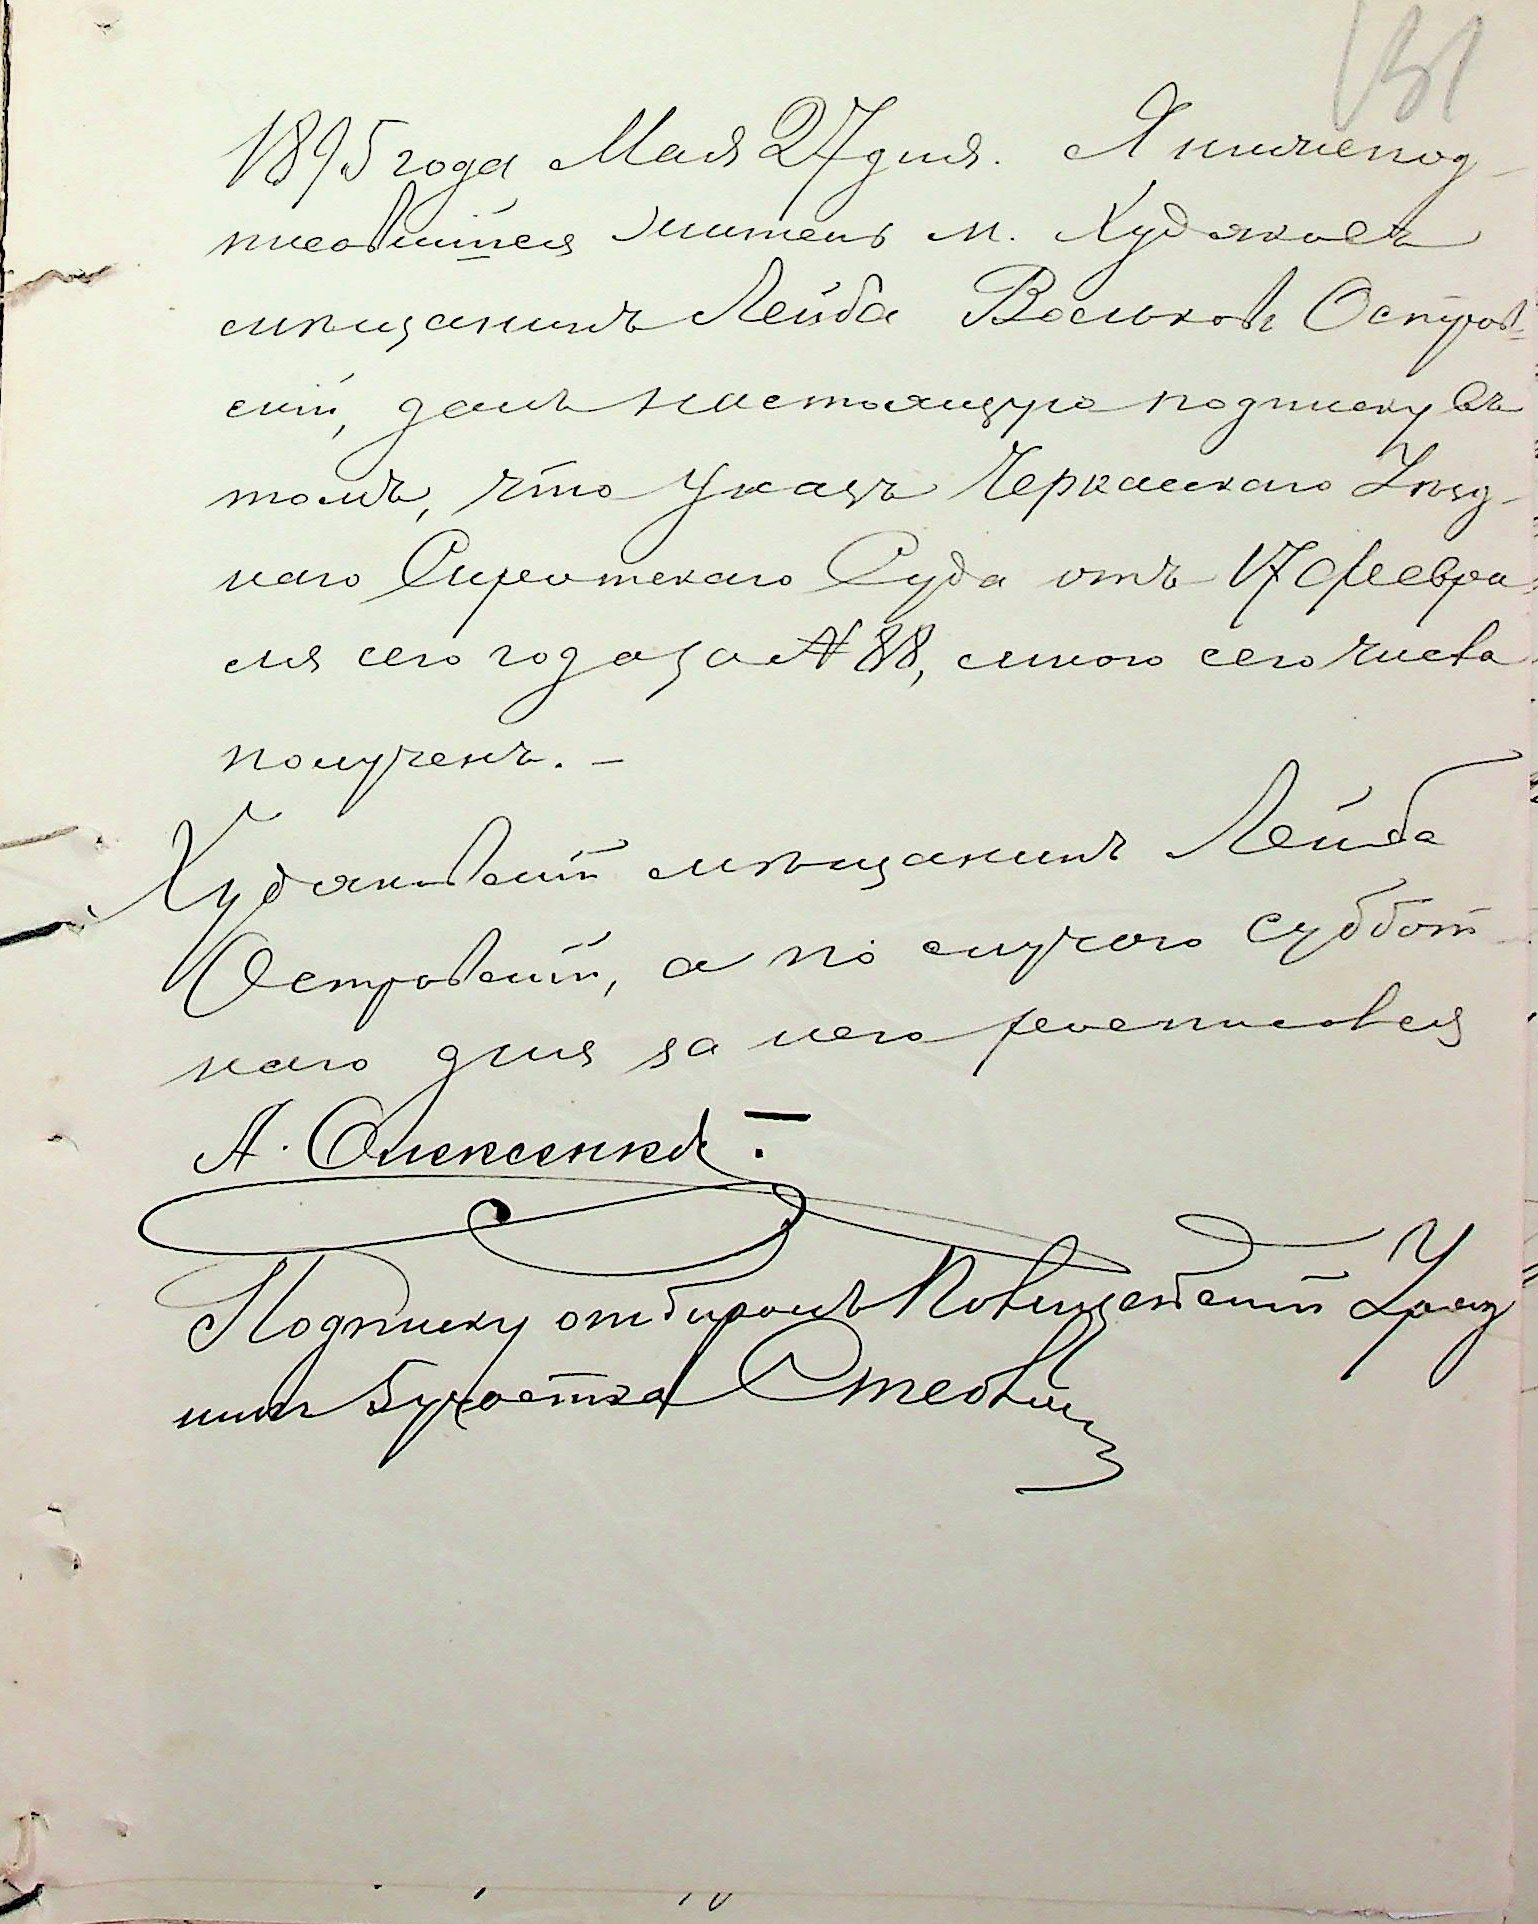 131
1895 года Мая 27 дня. Я нижепод-
писавшійся житель м. Худяковъ
мѣщанинъ Лейба Вольковъ Остров-
скій, далъ настоящую подписку въ
томъ, что Указъ Черкасскаго Уѣзд-
наго Сиротскаго Суда отъ 17 Февра
ля сего года за № 88, мною сего числа
полученъ. —
Худяковскій мѣщанинъ Лейба
Островскій, а по случаю суббот-
наго дня за него росписовся
А. Олексенко.
Подписку отбиралъ Полицейскій Уряд
никъ 5 участка